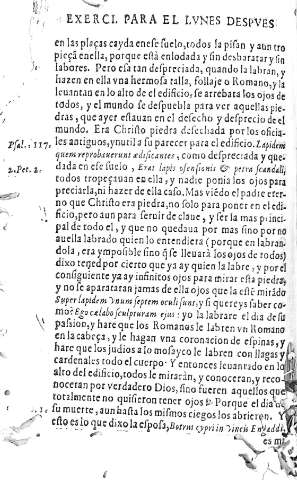 EXERCI. PARA EL LVNES DESPVES
en las plaças cayda enese suelo, todos la pisan y aun tro
pieçã enella, porque está enlodada y sin desbaratar y sin
labores. Pero esta tan despreciada, quando la labran, y
hazen en ella vna hermosa talla, follaje o Romano, y la
leuantan en lo alto de el edificio, se arrebata los ojos de
todos, y el mundo se despuebla para ver aquellas pie-
dras, que ayer estauan en el desecho y desprecio de el
mundo. Era Christo piedra desechada por los oficia-
Psal. 117. les antiguos, ynutil a su parecer para el edificio. Lapidem
quem reprobauerunt ædificantes, como despreciada, y que-
2. Pet. 2. dada en ese suelo, Erat lapis ofensionis & petra scandali,
todos tropeçauan en ella, y nadie ponia los ojos para
preciarla, ni hazer de ella caso. Mas viẽdo el padre eter-
no que Christo era piedra, no solo para poner en el edi-
ficio, pero aun para seruir de claue, y ser la mas princi-
pal de todo el, y que no quedaua por mas sino por no
auella labrado quien lo entendiera (porque en labran-
dola, era ymposible sino q̃ se lleuarà los ojos de todos)
dixo tened por cierto que ya ay quien la labre, y por el
consiguiente ya ay infinitos ojos para mirar esta piedra,
y no se apartaran jamas de ella ojos que la estẽ mirãdo
Super lapidem vnum septem oculi sunt, y si quereys saber co-
mo? Ego cælabo sculpturam ejus: yo la labrare el dia de su
passion, y hare que los Romanos le labren vn Romano
en la cabeça, y le hagan vna coronacion de espinas, y
hare que los judios a lo mosayco le labren con llagas y
cardenales todo el cuerpo. Y entonces leuantado en lo
alto del edificio, todos le miràran, y conoceran, y reco-
noceran por verdadero Dios, sino fueren aquellos que
totalmente no quisieren tener ojos. Porque el dia de
su muerte, aun hasta los mismos ciegos los abrieren. Y
esto es lo que dixo la esposa, Botrus cypri in vineis Engaddi,
es mi